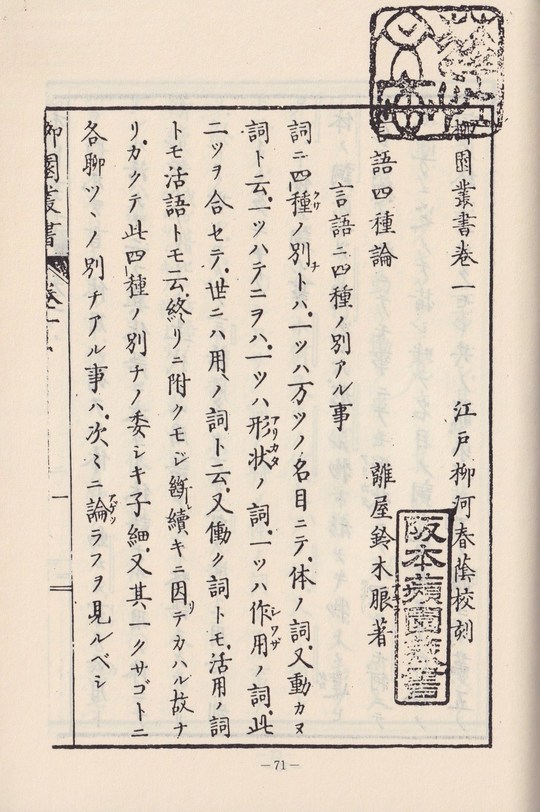 柳園叢書巻一　江戸柳河春蔭校刻
言語四種論　離屋鈴木朖著
言語ニ四種ノ別アル事
詞ニ四種ノ別トハ、一ツハ万ツノ名目ニテ、体ノ詞、又動カヌ
詞ト云、一ツハテニヲハ、一ツハ形状ノ詞、一ツハ作用ノ詞、此
二ツヲ合セテ、世ニハ用ノ詞ト云、又働ク詞トモ、活用ノ詞
トモ活語トモ云、終リニ附クモジ断續キニ因リテカハル故ナ
リ、カクテ此四種ノ別チノ委シキ子細、又其一クサゴトニ
各聊ツヽノ別チアル事ハ、次々ニ論ラフヲ見ルベシ
柳園叢書　巻一　一
阪本蘋園蔵書
—71—